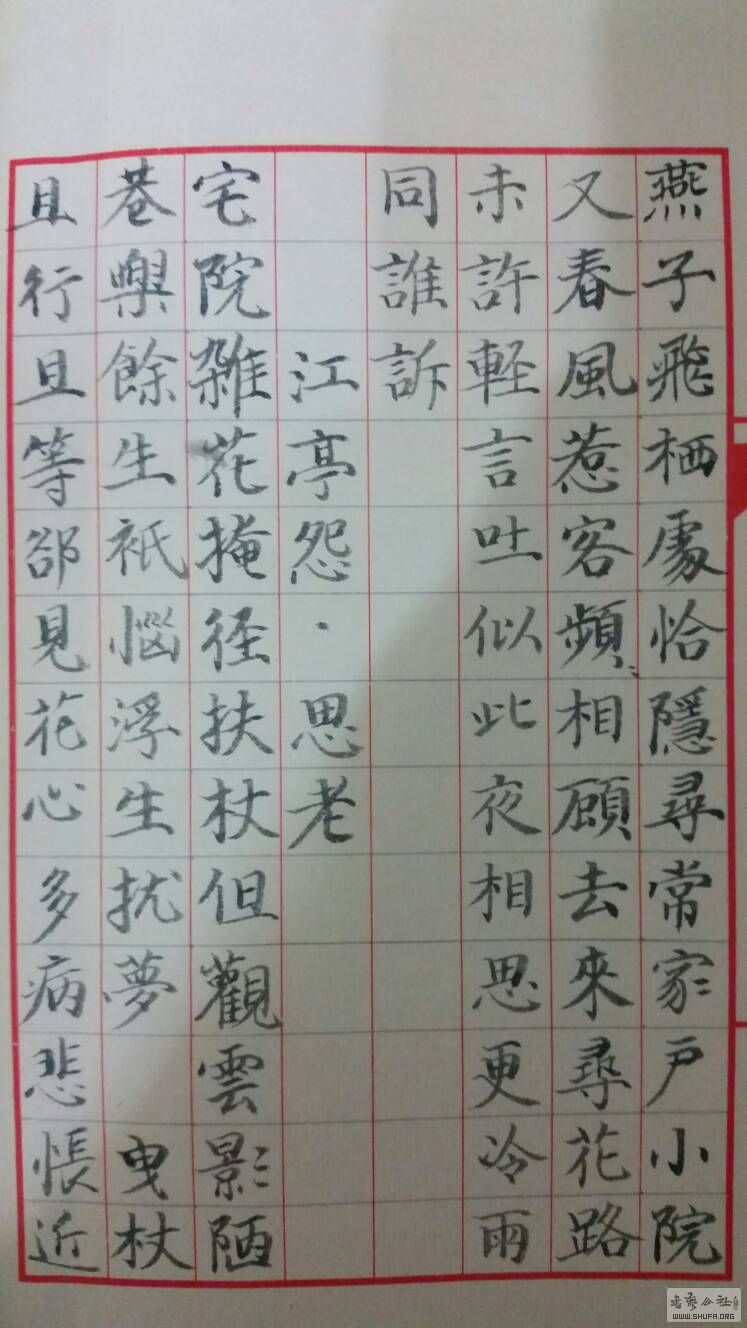 燕子飛栖處恰隱尋常家〻戶小院
又春風惹客頻〻相顧去來尋花路
未許輕言吐似此夜相思更冷雨
同誰訴
江亭怨·思老
宅院雜花掩径扶杖但觀雲影〻陋
巷與餘生衹惱浮生扰夢 曳杖
且行且等卻見花心多病悲悵近
WWW.SHUFA.ORG